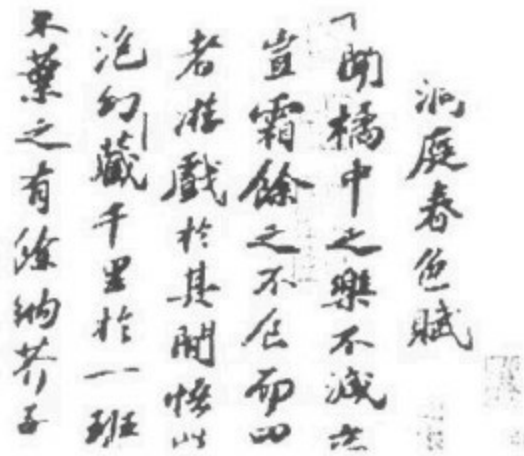 洞庭春色賦
聞橘中之樂不減
豈霜餘之不食而四
者游戲於其間悟此
泡幻藏千里於一班
葉之有餘納芥子